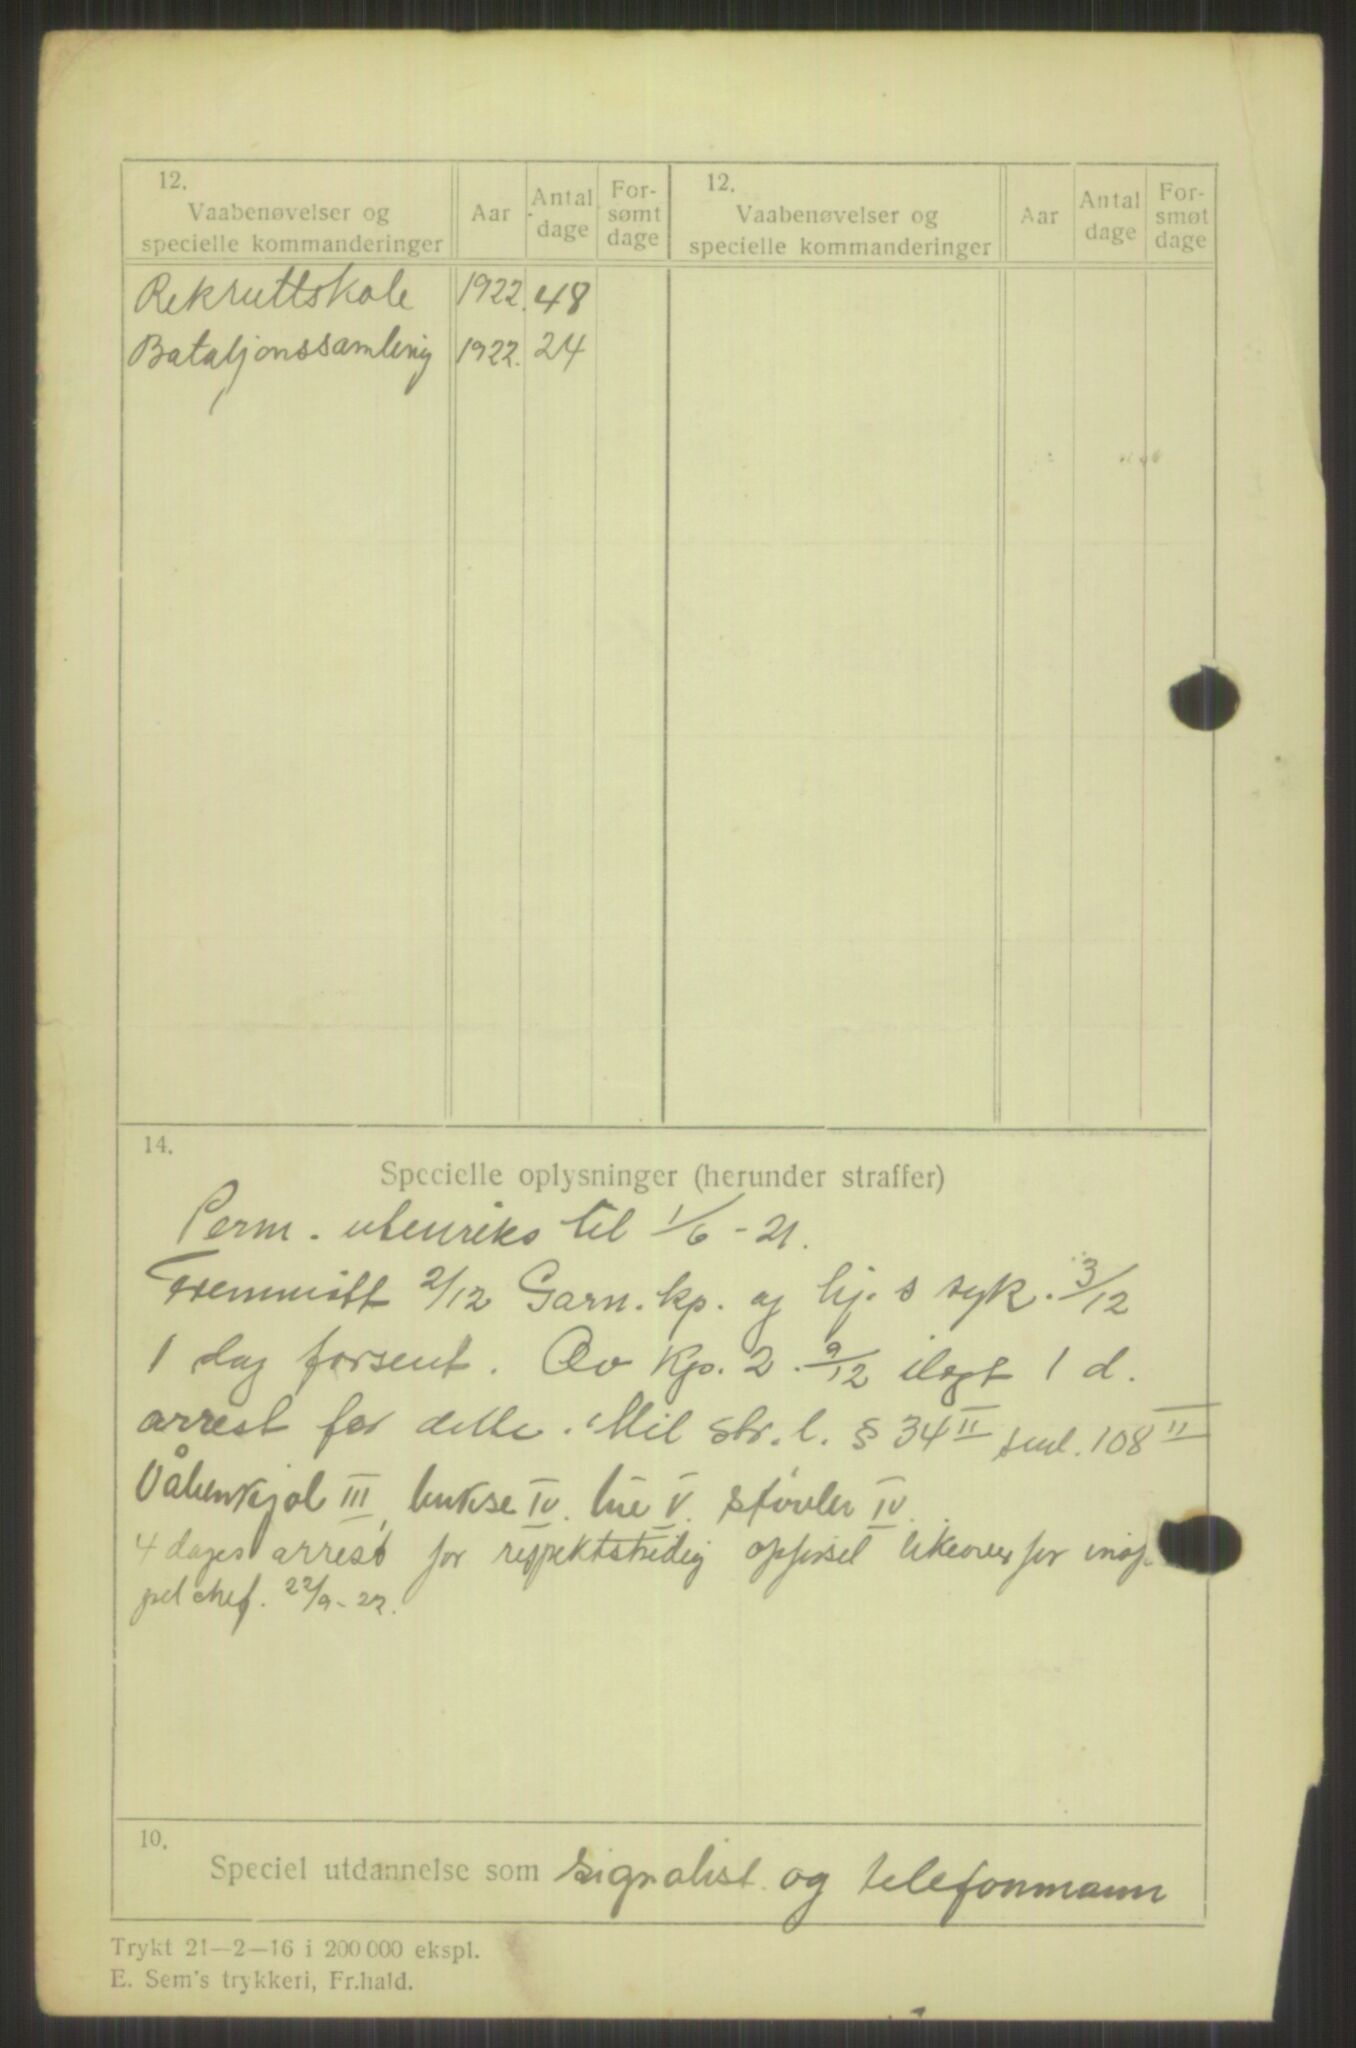 12. Vaabenøvelser og specielle kommanderinger Aar Antal dage For-sømt dage 12. Vaabenøvelser og specielle kommanderinger Aar Antal dage For-smøt dage
Rekruttskole 1922. 48
Bataljonssamling 1922. 24
14.
Specielle oplysninger (herunder straffer)
Perm. utenriks til 1/6 - 21.
Fremmøtt 2/12 Garn. kp. og hj. s syk. 3/12
1 dag forsent. Av Kp. 2. 9/12 ilagt 1 d.
arrest for dette. Mil str. l. § 34 II 108 II
Våbenkjol III, bukse IV. lue V. støvler IV.
4 dages arrest for respektstridig opførsel likeoverfor
chef. 22/9-22.
10.
Speciel utdannelse som signalist og telefonmann
Trykt 21-2-16 i 200 000 ekspl.
E. Sem's trykkeri, Fr.hald.